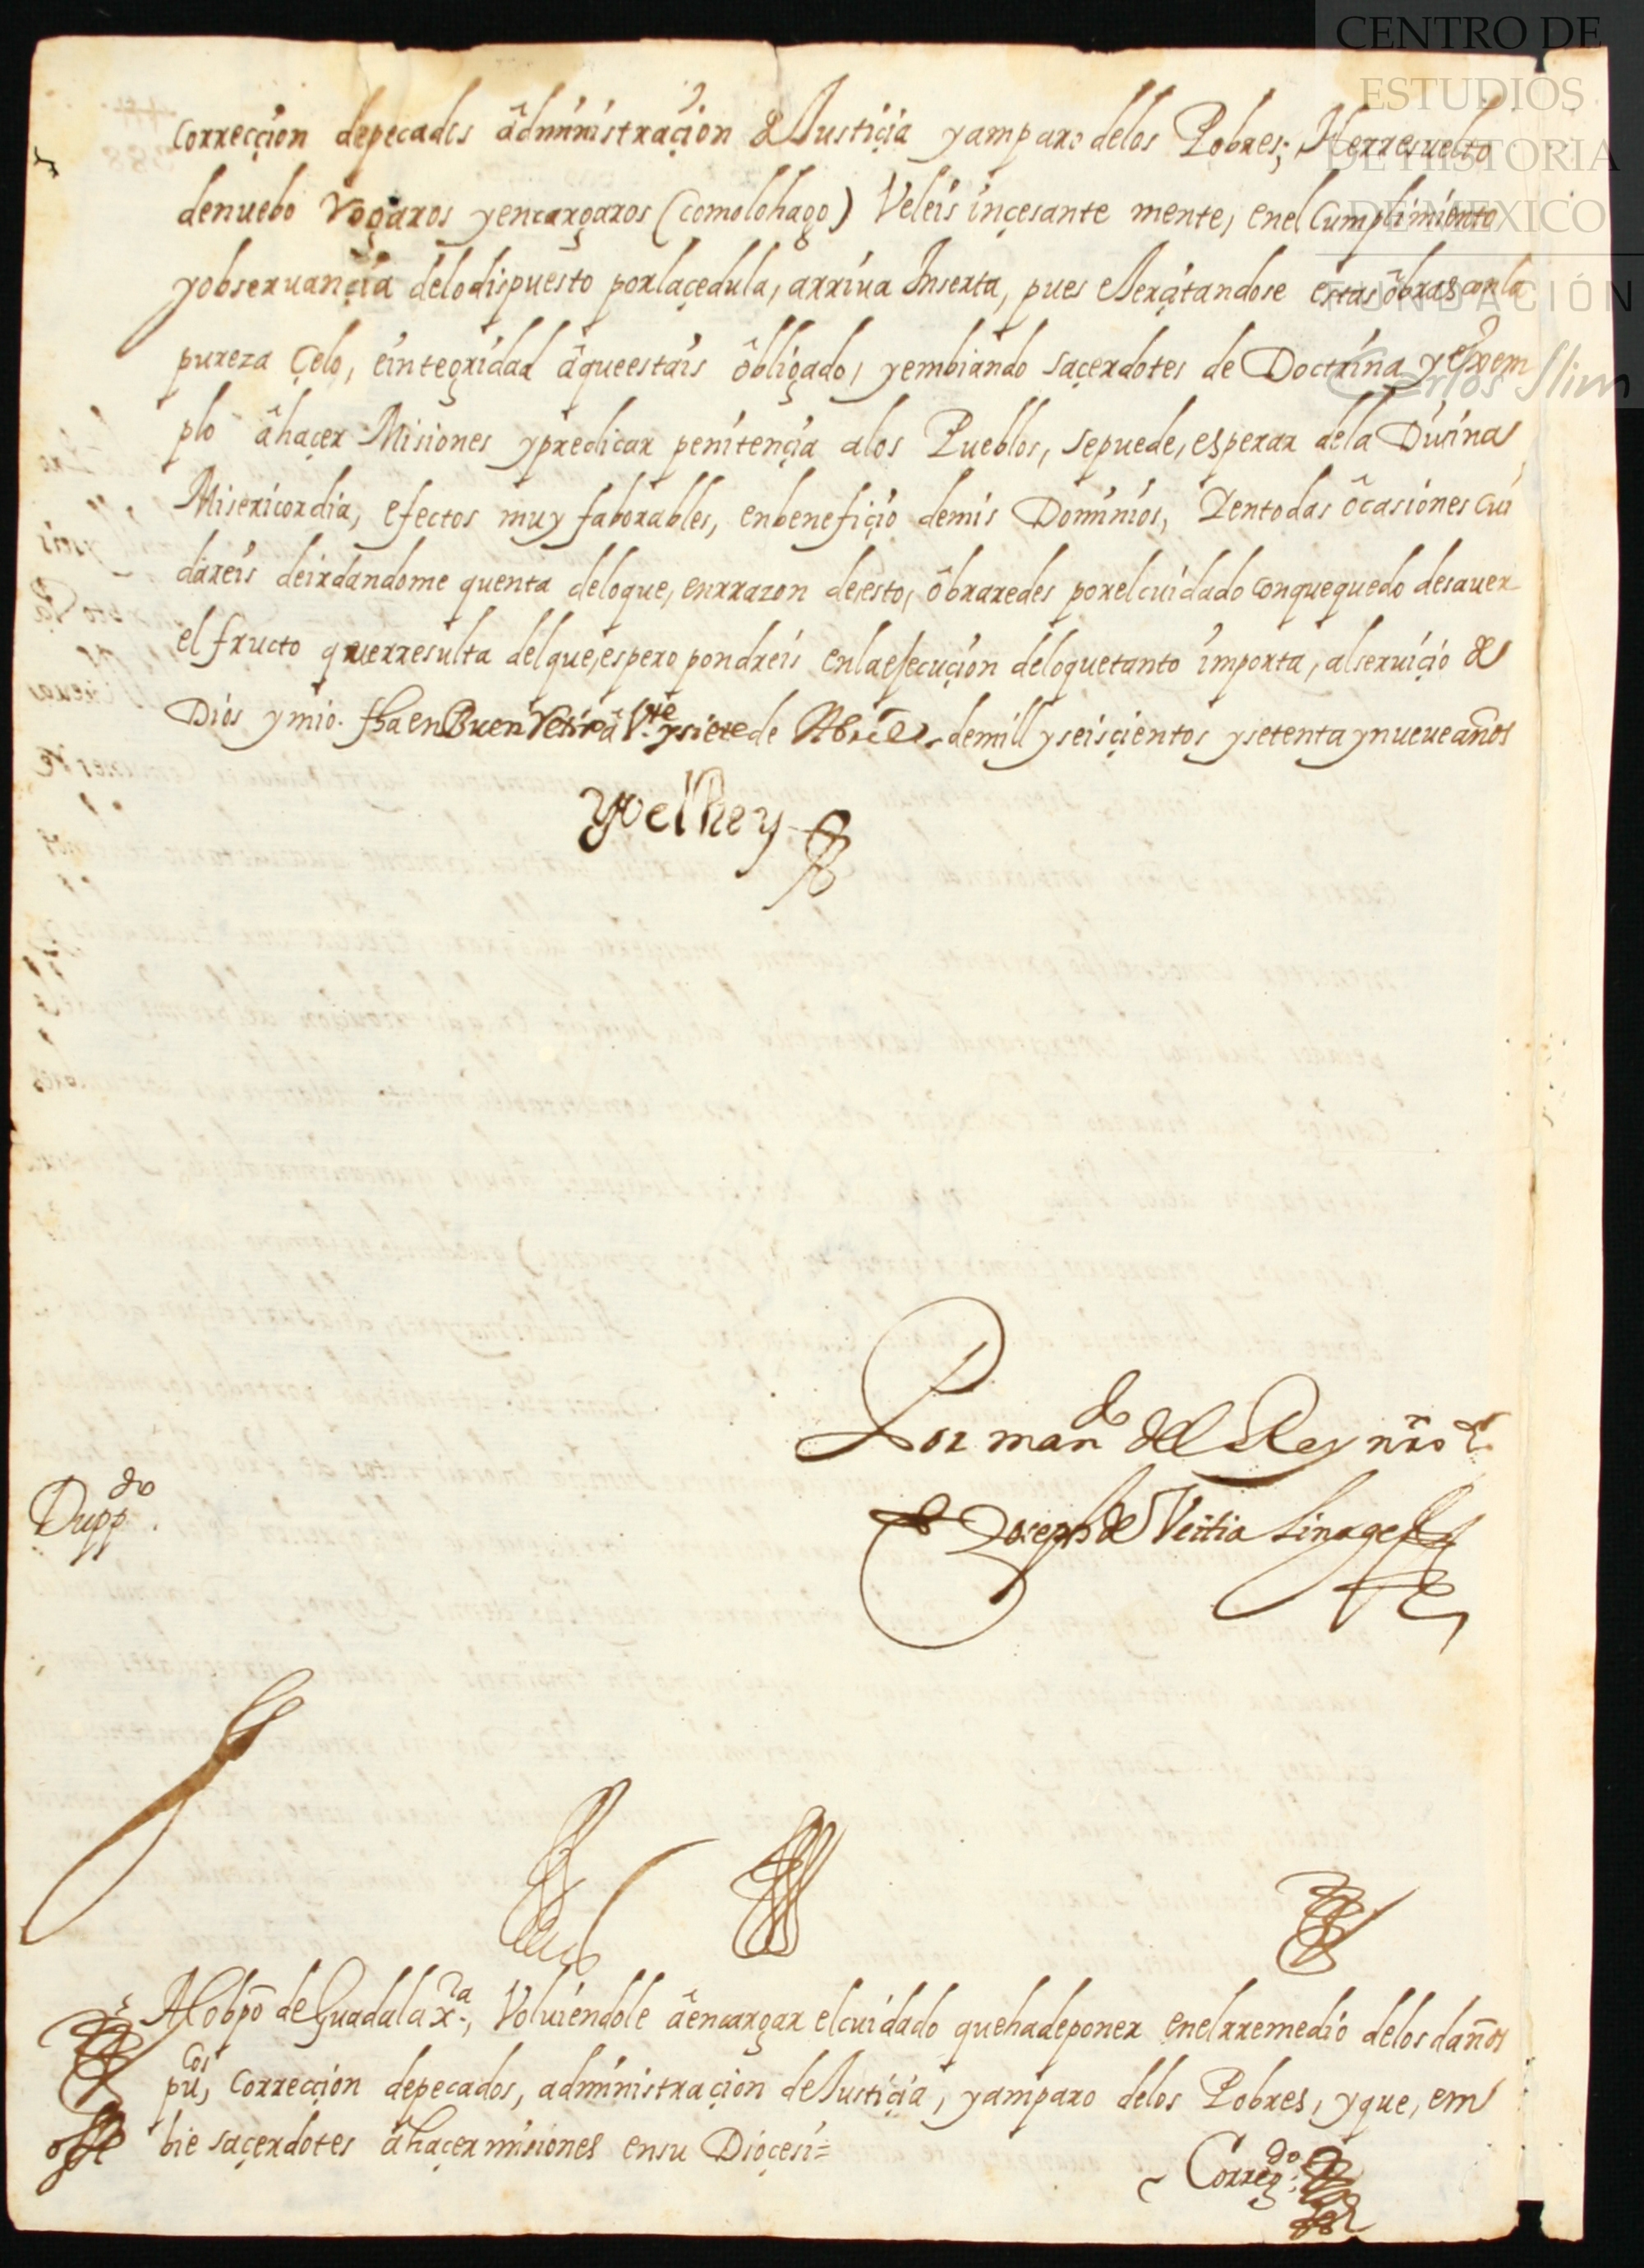 CENTRO DE
ESTUDIOS
DE HISTORIA
DE MEXICO
FUNDACIÓN
Carlos Slim
correcçion depecados âdministraçion de Justiçia yamparo delos Pobres; Herresuelto
denuebo Rogaros yencargaros (comolohago) Veleis inçesante mente, enel Cumplimiento
yobseruançia delodispuesto porlaçedula, arriua Inserta, pues exerçitandose estas ôbras conla
pureza çelo, eintegridad âqueestais ôbligado, yembiando saçerdotes de Doctrina yexem
plo âhaçer Misiones ypredicar penitençia alos Pueblos, sepuede, esperar dela Diuina
Misericordia, efectos muy faborables, enbenefiçio demis Dominios, Yentodas ôcasiones Cui
dareis deirdandome quenta deloque, enrrazon deesto, ôbraredes porelcuidado conquequedo desauer
el fructo querresulta delque, espero pondreis enlaexecuçion deloquetanto importa, alseruiçio de
Dios ymio. fha en Buen Retiro â Vte ysiete de Abril demill yseisçientos ysetenta ynueue años
Yo el Rey
Por mando del Rey nro sr.
D Joseph de Veitia Linage
Duppdo.
Al obpõ de Guadalaxra, Voluiendole âencargar elcuidado quehadeponer enelrremedio delos daños
pucos, Correcçion depecados, administraçion deJustiçia, yamparo delos Pobres, yque, em
bie saçerdotes âhaçer misiones ensu Dioçesi=
Corregdo: